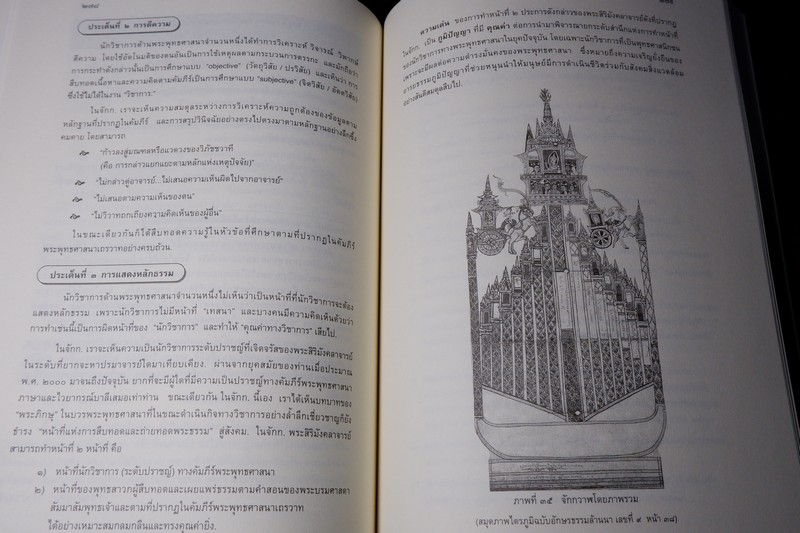 ๒๙๘
ประเด็นที่ ๒ การตีความ
นักวิชาการด้านพระพุทธศาสนาจำนวนหนึ่งได้ทำการวิเคราะห์ วิจารณ์ วิพากษ์
ตีความ โดยใช้อัตโนมติของตนอันเป็นการใช้เหตุผลตามกระบวนการตรรกะ และมักถือว่า
การกระทำดังกล่าวนั้นเป็นการศึกษาแบบ "objective" (วัตถุวิสัย / ปรวิสัย) และเห็นว่า การ
สืบทอดเนื้อหาและความคิดตามคัมภีร์เป็นการศึกษาแบบ "subjective" (จิตวิสัย / อัตตวิสัย)
ซึ่งใช้ไม่ได้ในงาน "วิชาการ"
ในจักก. เราจะเห็นความสมดุลระหว่างการวิเคราะห์ความถูกต้องของข้อมูลตาม
หลักฐานที่ปรากฏในคัมภีร์ และการสรุปวินิจฉัยอย่างตรงไปตรงมาตามหลักฐานอย่างลึกซึ้ง
คมคาย โดยสามารถ
"ก้าวลงสู่มณฑลหรือแวดวงของวิภัชชวาที
(คือ การกล่าวแยกแยะตามหลักแห่งเหตุปัจจัย)"
"ไม่กล่าวตู่อาจารย์...ไม่เสนอความเห็นผิดไปจากอาจารย์"
"ไม่เสนอตามความเห็นของตน"
"ไม่วิวาทถกเถียงความคิดเห็นของผู้อื่น"
ในขณะเดียวกันก็ได้สืบทอดความรู้ในหัวข้อที่ศึกษาตามที่ปรากฏในคัมภีร์
พระพุทธศาสนาเถรวาทอย่างครบถ้วน.
ประเด็นที่ ๓ การแสดงหลักธรรม
นักวิชาการด้านพระพุทธศาสนาจำนวนหนึ่งไม่เห็นว่าเป็นหน้าที่ที่นักวิชาการจะต้อง
แสดงหลักธรรม เพราะนักวิชาการไม่มีหน้าที่ "เทศนา" และบางคนมีความคิดเห็นด้วยว่า
การทำเช่นนี้เป็นการผิดหน้าที่ของ "นักวิชาการ" และทำให้ "คุณค่าทางวิชาการ" เสียไป.
ในจักก. เราจะเห็นความเป็นนักวิชาการระดับปราชญ์ที่เจิดจรัสของพระสิริมังคลาจารย์
ในระดับที่ยากจะหาปรมาจารย์ใดมาเทียบเคียง. ผ่านจากยุคสมัยของท่านเมื่อประมาณ
พ.ศ. ๒๐๐๐ มาจนถึงปัจจุบัน ยากที่จะมีผู้ใดที่มีความเป็นปราชญ์ทางคัมภีร์พระพุทธศาสนา
ภาษาและไวยากรณ์บาลีเสมอเท่าท่าน ขณะเดียวกัน ในจักก. นี้เอง เราได้เห็นบทบาทของ
"พระภิกษุ" ในบวรพระพุทธศาสนาที่ในขณะดำเนินกิจทางวิชาการอย่างล้ำลึกเชี่ยวชาญก็ยัง
ธำรง "หน้าที่แห่งการสืบทอดและถ่ายทอดพระธรรม" สู่สังคม. ในจักก. พระสิริมังคลาจารย์
สามารถทำหน้าที่ ๒ หน้าที่ คือ
๑) หน้าที่นักวิชาการ (ระดับปราชญ์) ทางคัมภีร์พระพุทธศาสนา
๒) หน้าที่ของพุทธสาวกผู้สืบทอดและเผยแพร่ธรรมตามคำสอนของพระบรมศาสดา
สัมมาสัมพุทธเจ้าและตามที่ปรากฏในคัมภีร์พระพุทธศาสนาเถรวาท
ได้อย่างเหมาะสมกลมกลืนและทรงคุณค่ายิ่ง.
ความเด่น ของการทำหน้าที่ ๒ ประการดังกล่าวของพระสิริมังคลาจารย์ดังที่ปรากฏ
ในจักก. เป็น ภูมิปัญญา ที่มี คุณค่า ต่อการนำมาพิจารณายกระดับสำนึกแห่งการทำหน้าที่
ของนักวิชาการทางพระพุทธศาสนาในยุคปัจจุบัน โดยเฉพาะนักวิชาการที่เป็นพุทธศาสนิกชน
เพราะจะมีผลต่อความดำรงมั่นคงของพระพุทธศาสนา ซึ่งหมายถึงความเจริญยั่งยืนของ
การธรรมภูมิปัญญาที่ช่วยหนุนนำให้มนุษย์มีการดำเนินชีวิตร่วมกับสังคมสิ่งแวดล้อม
อย่างสันติสมดุลสืบไป.
ภาพที่ ๓๕ จักกวาฬโดยภาพรวม
(สมุดภาพไตรภูมิฉบับอักษรธรรมล้านนา เลขที่ ๙ หน้า ๓๘)